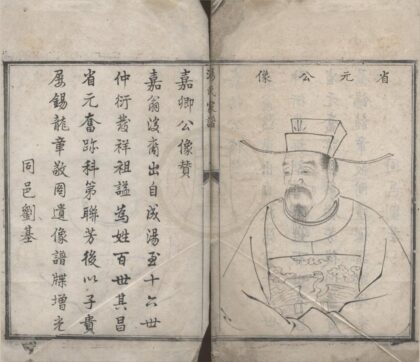 省元公像
湯氏家譜
嘉卿公像贊
嘉翁後裔出自成湯至十六世
仲衍發祥祖謚為姓百世其昌
省元奮跡科第聯芳後以子貴
屢錫龍章敬罔遺像譜牒增光
同邑劉基